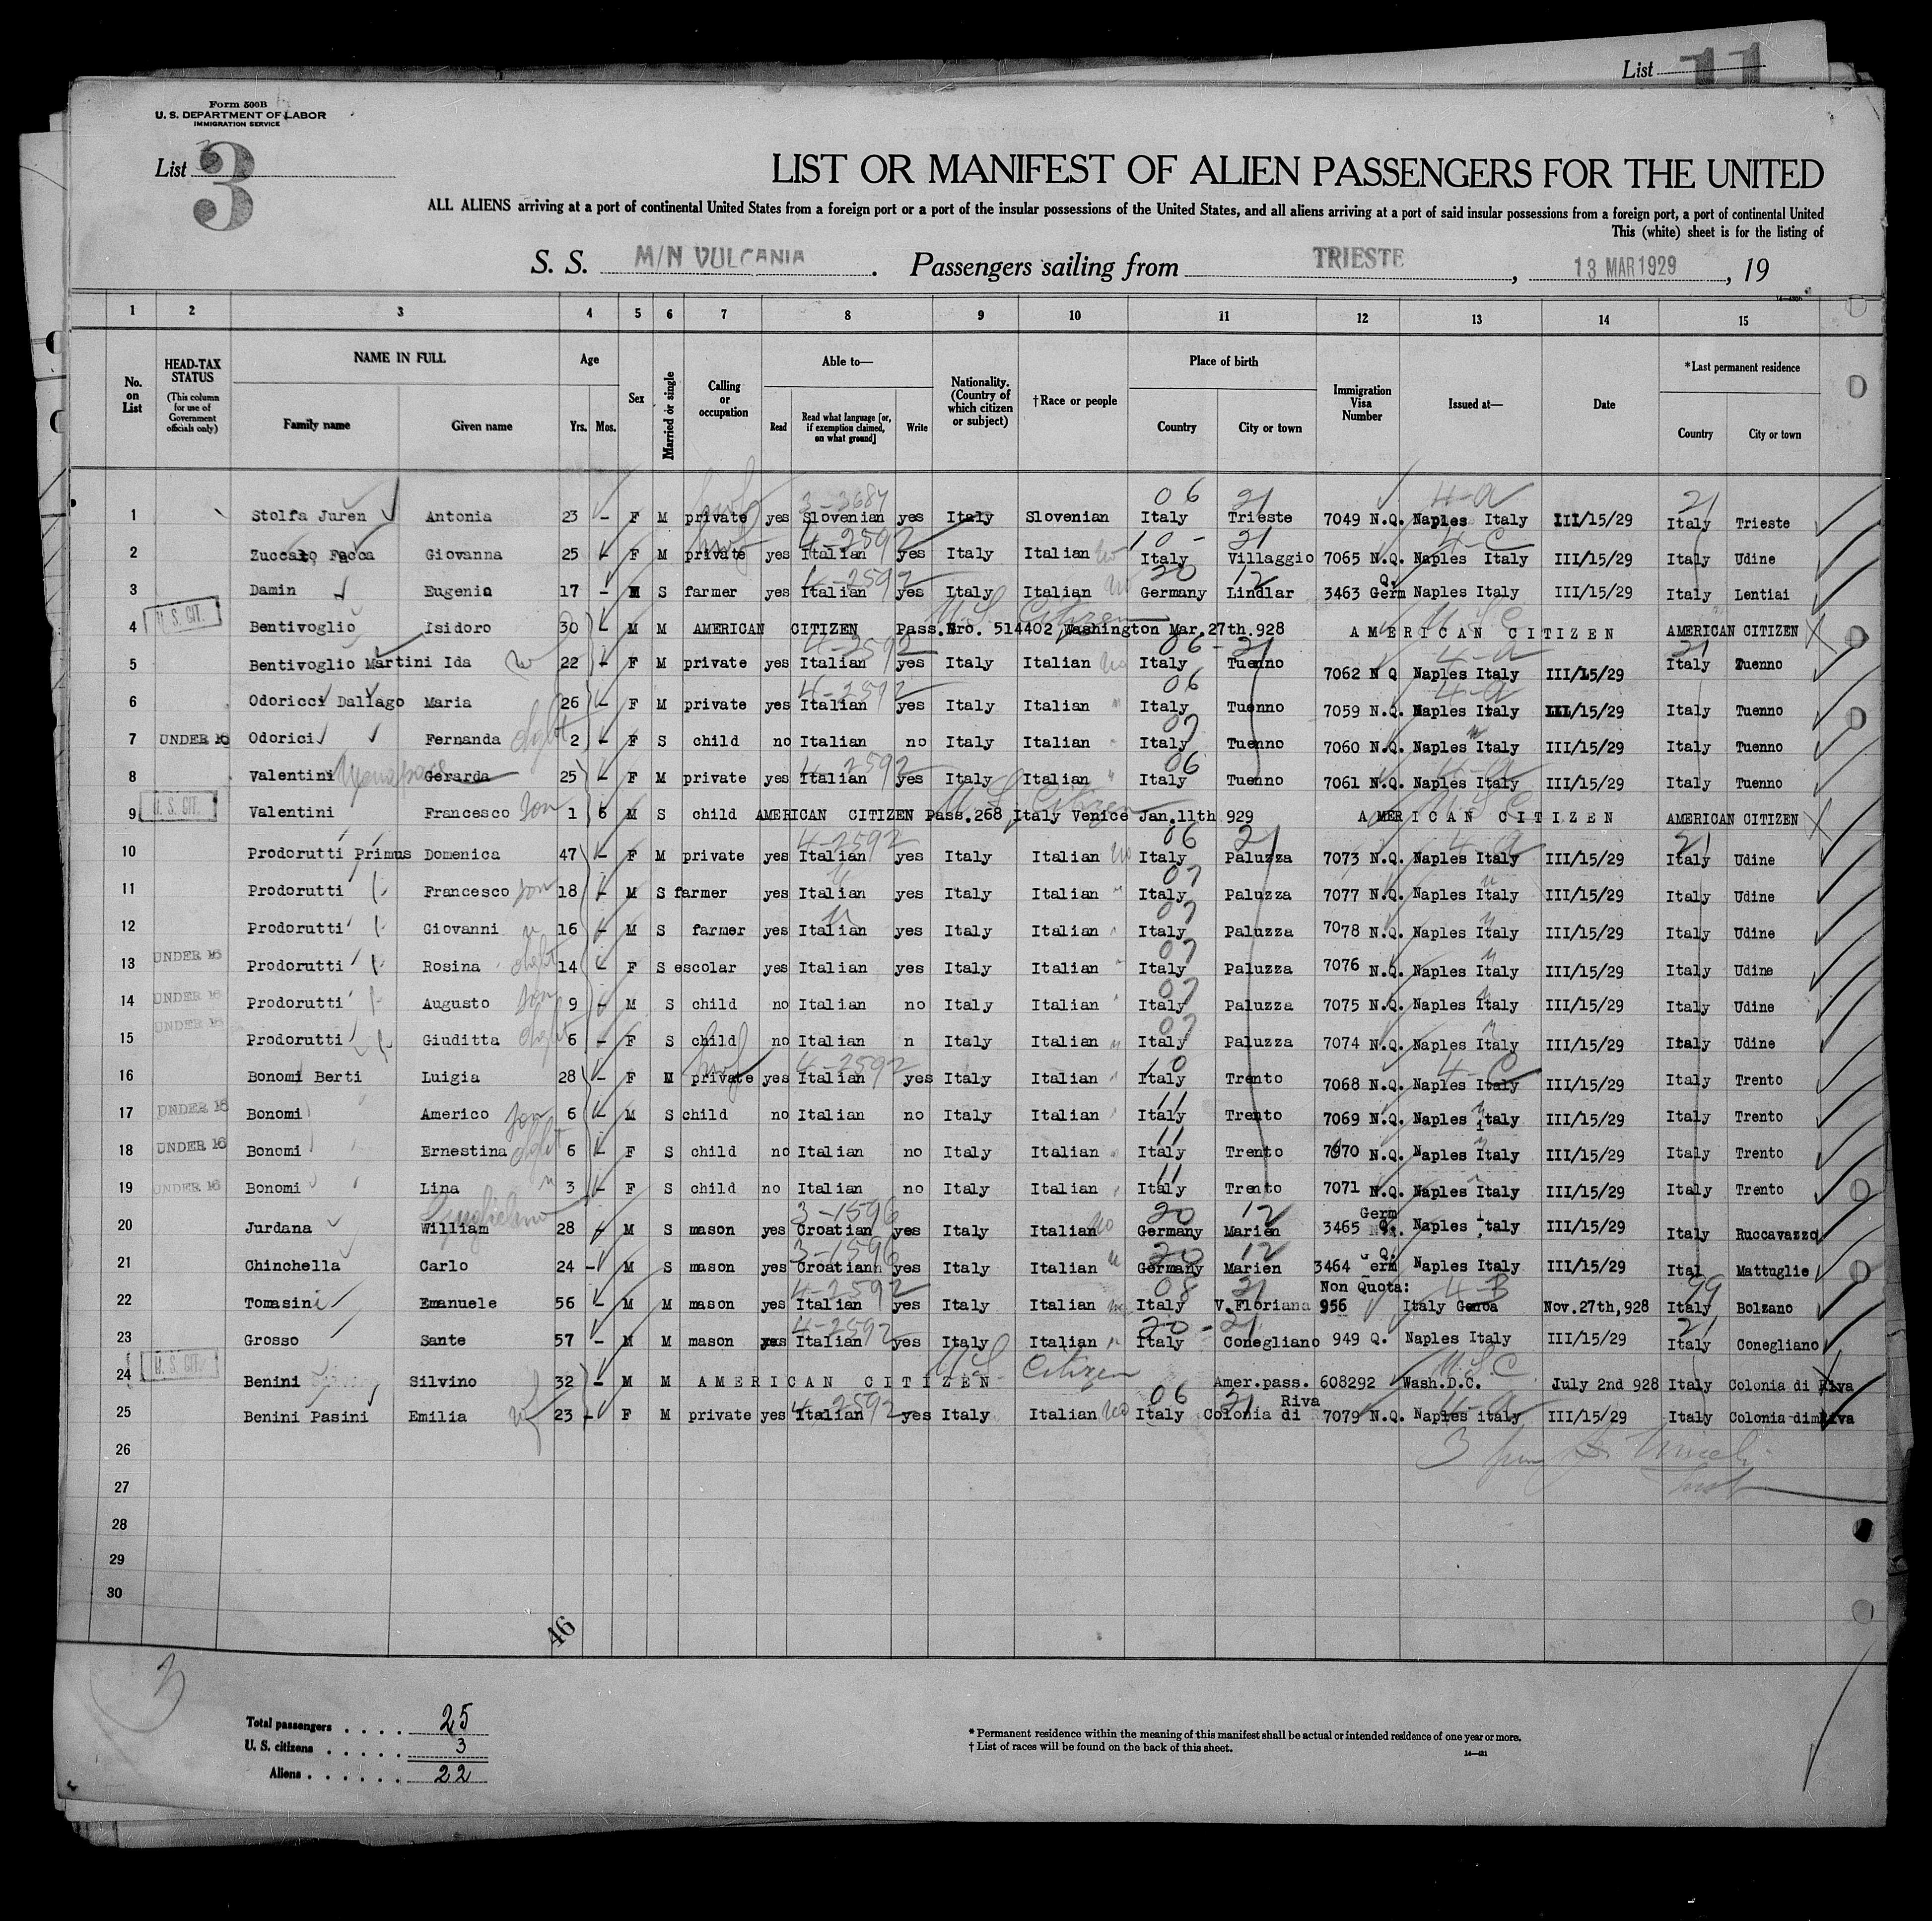 List 11
Form 500B
U. S. DEPARTMENT OF LABOR
IMMIGRATION SERVICE
List 3
LIST OR MANIFEST OF ALIEN PASSENGERS FOR THE UNITED
ALL ALIENS arriving at a port of continental United States from a foreign port or a port of the insular possessions of the United States, and all aliens arriving at a port of said insular possessions from a foreign port, a port of continental United
This (white) sheet is for the listing of
S. S. M/N VULCANIA. Passengers sailing from TRIESTE, 13 MAR 1929, 19
1 2 3 4 5 6 7 8 9 10 11 12 13 14 15
No. on List HEAD-TAX STATUS (This column for use of Government officials only) NAME IN FULL Family name Given name Age Yrs. Mos. Sex Married or single Calling or occupation Able to— Read Read what language [or, if exemption claimed, on what ground] Write Nationality. (Country of which citizen or subject) †Race or people Place of birth Country City or town Immigration Visa Number Issued at— Date *Last permanent residence Country City or town
3-3687 06 21 4-a 21
1 Stolfa Juren Antonia 23 - F M private yes Slovenian yes Italy Slovenian Italy Trieste 7049 N.Q. Naples Italy III/15/29 Italy Trieste
4-2592 10 - 21 4-C
2 Zuccato Facca Giovanna 25 - F M private yes Italian yes Italy Italian Italy Villaggio 7065 N.Q. Naples Italy III/15/29 Italy Udine
4-2592 20 12 Q.
3 Damin Eugenio 17 - M S farmer yes Italian yes Italy Italian Germany Lindlar 3463 Germ Naples Italy III/15/29 Italy Lentiai
U. S. CIT. U.S. Citizen U S C
4 Bentivoglio Isidoro 30 - M M AMERICAN CITIZEN Pass.Nro. 514402 Washington Mar.27th.928 AMERICAN CITIZEN AMERICAN CITIZEN
4-2592 06 - 21 4-a 21
5 Bentivoglio Martini Ida w 22 - F M private yes Italian yes Italy Italian Italy Tuenno 7062 N Q Naples Italy III/15/29 Italy Tuenno
4-2592 06 4-a
6 Odoricci Dallago Maria 26 - F M private yes Italian yes Italy Italian Italy Tuenno 7059 N.Q. Naples Italy III/15/29 Italy Tuenno
07
7 UNDER 16 Odorici Fernanda 2 - F S child no Italian no Italy Italian Italy Tuenno 7060 N.Q. Naples Italy III/15/29 Italy Tuenno
4-2592 06 4-a
8 Valentini Gerarda 25 - F M private yes Italian yes Italy Italian Italy Tuenno 7061 N.Q. Naples Italy III/15/29 Italy Tuenno
U. S. CIT. U S Citizen U S C
9 Valentini Francesco son 1 6 M S child AMERICAN CITIZEN Pass.268 Italy Venice Jan.11th 929 AMERICAN CITIZEN AMERICAN CITIZEN
4-2592 06 21 4-a 21
10 Prodorutti Primus Domenica 47 - F M private yes Italian yes Italy Italian Italy Paluzza 7073 N.Q. Naples Italy III/15/29 Italy Udine
07
11 Prodorutti Francesco son 18 - M S farmer yes Italian yes Italy Italian Italy Paluzza 7077 N.Q. Naples Italy III/15/29 Italy Udine
07
12 Prodorutti Giovanni 16 - M S farmer yes Italian yes Italy Italian Italy Paluzza 7078 N.Q. Naples Italy III/15/29 Italy Udine
07
13 UNDER 16 Prodorutti Rosina 14 - F S escolar yes Italian yes Italy Italian Italy Paluzza 7076 N.Q. Naples Italy III/15/29 Italy Udine
07
14 UNDER 16 Prodorutti Augusto son 9 - M S child no Italian no Italy Italian Italy Paluzza 7075 N.Q. Naples Italy III/15/29 Italy Udine
07
15 UNDER 16 Prodorutti Giuditta 6 - F S child no Italian n Italy Italian Italy Paluzza 7074 N.Q. Naples Italy III/15/29 Italy Udine
4-2592 10 4-C
16 Bonomi Berti Luigia 28 - F M private yes Italian yes Italy Italian Italy Trento 7068 N.Q. Naples Italy III/15/29 Italy Trento
11
17 UNDER 16 Bonomi Americo son 6 - M S child no Italian no Italy Italian Italy Trento 7069 N.Q. Naples italy III/15/29 Italy Trento
11
18 UNDER 16 Bonomi Ernestina 6 - F S child no Italian no Italy Italian Italy Trento 7070 N.Q. Naples Italy III/15/29 Italy Trento
11
19 UNDER 16 Bonomi Lina 3 - F S child no Italian no Italy Italian Italy Trento 7071 N.Q. Naples Italy III/15/29 Italy Trento
Guglielmo 3-1596 20 12 Germ
20 Jurdana William 28 - M S mason yes Croatian yes Italy Italian Germany Marien 3465 Q. Naples Italy III/15/29 Italy Ruccavazzo
3-1596 20 12 Q.
21 Chinchella Carlo 24 - M S mason yes Croatianh yes Italy Italian Germany Marien 3464 erm Naples Italy III/15/29 Ital Mattuglie
4-2592 08 21 Non Quota: 4-B 99
22 Tomasini Emanuele 56 - M M mason yes Italian yes Italy Italian Italy V.Floriana 956 Italy Genoa Nov.27th,928 Italy Bolzano
4-2592 20 - 21 21
23 Grosso Sante 57 - M M mason yes Italian yes Italy Italian Italy Conegliano 949 Q. Naples Italy III/15/29 Italy Conegliano
U. S. CIT. U S Citizen U.S.C.
24 Benini Silvino 32 - M M AMERICAN CITIZEN Amer.pass. 608292 Wash.D.C. July 2nd 928 Italy Colonia di Riva
4-2592 06 21 Riva 4-a
25 Benini Pasini Emilia 23 - F M private yes Italian yes Italy Italian Italy Colonia di 7079 N.Q. Naples italy III/15/29 Italy Colonia dimRiva
26
27
28
29
30
46
3
Total passengers . . . . 25
U. S. citizens . . . . . 3
Aliens . . . . . . 22
* Permanent residence within the meaning of this manifest shall be actual or intended residence of one year or more.
† List of races will be found on the back of this sheet.
14—431